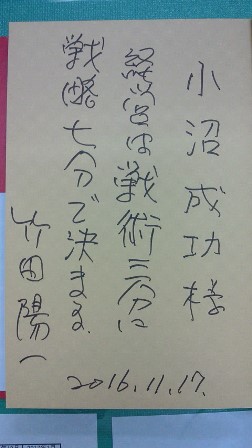 小沼成功様
経営は戦術三分に
戦略七分で決まる。
竹田陽一
2016.11.17.